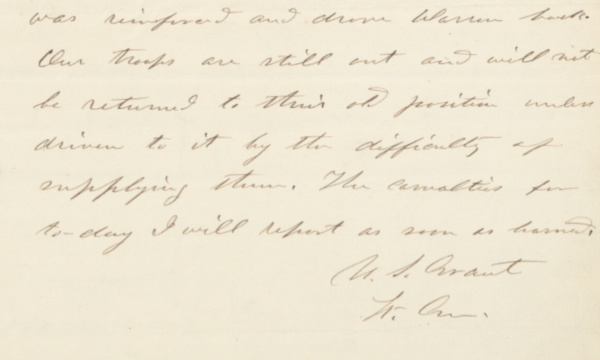 was reinforced and drove Warren back.
Our troops are still out and will not
be returned to their old position unless
driven to it by the difficulty of
supplying them. The casualties for
to-day I will report as soon as learned.
U. S. Grant
Lt. Gn.